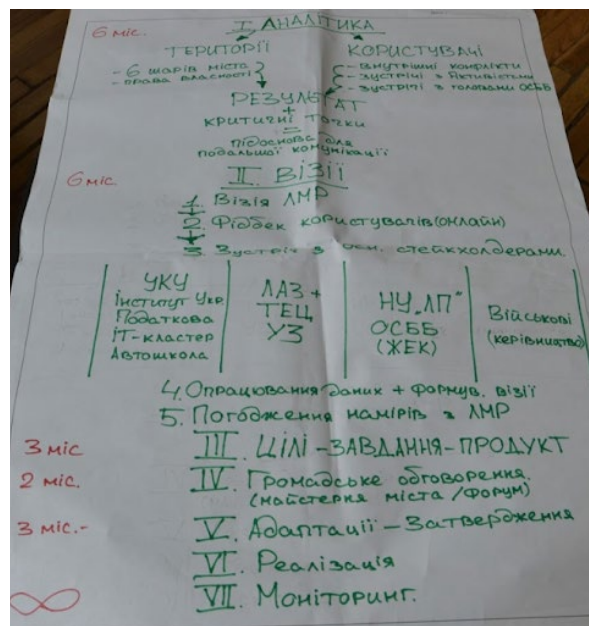 6 міс.
I АНАЛІТИКА
ТЕРИТОРІЇ
КОРИСТУВАЧІ
- 6 шарів міста
- права власності
- внутрішні конфлікти
- зустрічі з Активістами
- зустрічі з головами ОСББ
РЕЗУЛЬТАТ
+
КРИТИЧНІ ТОЧКИ
=
підоснова для
подальшої комунікації
6 міс.
II. ВІЗІЇ
1. Візія ЛМР
2. Фідбек користувалів (онлайн)
3. Зустріч з осн. стейкхолдерами
УКУ
інститут Укр.
Податкова
ІТ-кластер
Автошкола
ЛАЗ +
ТЕЦ
УЗ
НУ „ЛП"
ОСББ
(ЖЕК)
Військові
(керівництво)
4. Опрацювання даних + формув. візії
5. Погодження намірів з ЛМР
3 міс
III. ЦІЛІ - ЗАВДАННЯ - ПРОДУКТ
2 міс.
IV. Громадське обговорення.
(майстерня міста / форум)
3 міс. -
V. Адаптації - Затвердження
VI. Реалізація
∞
VII. Моніторинг.